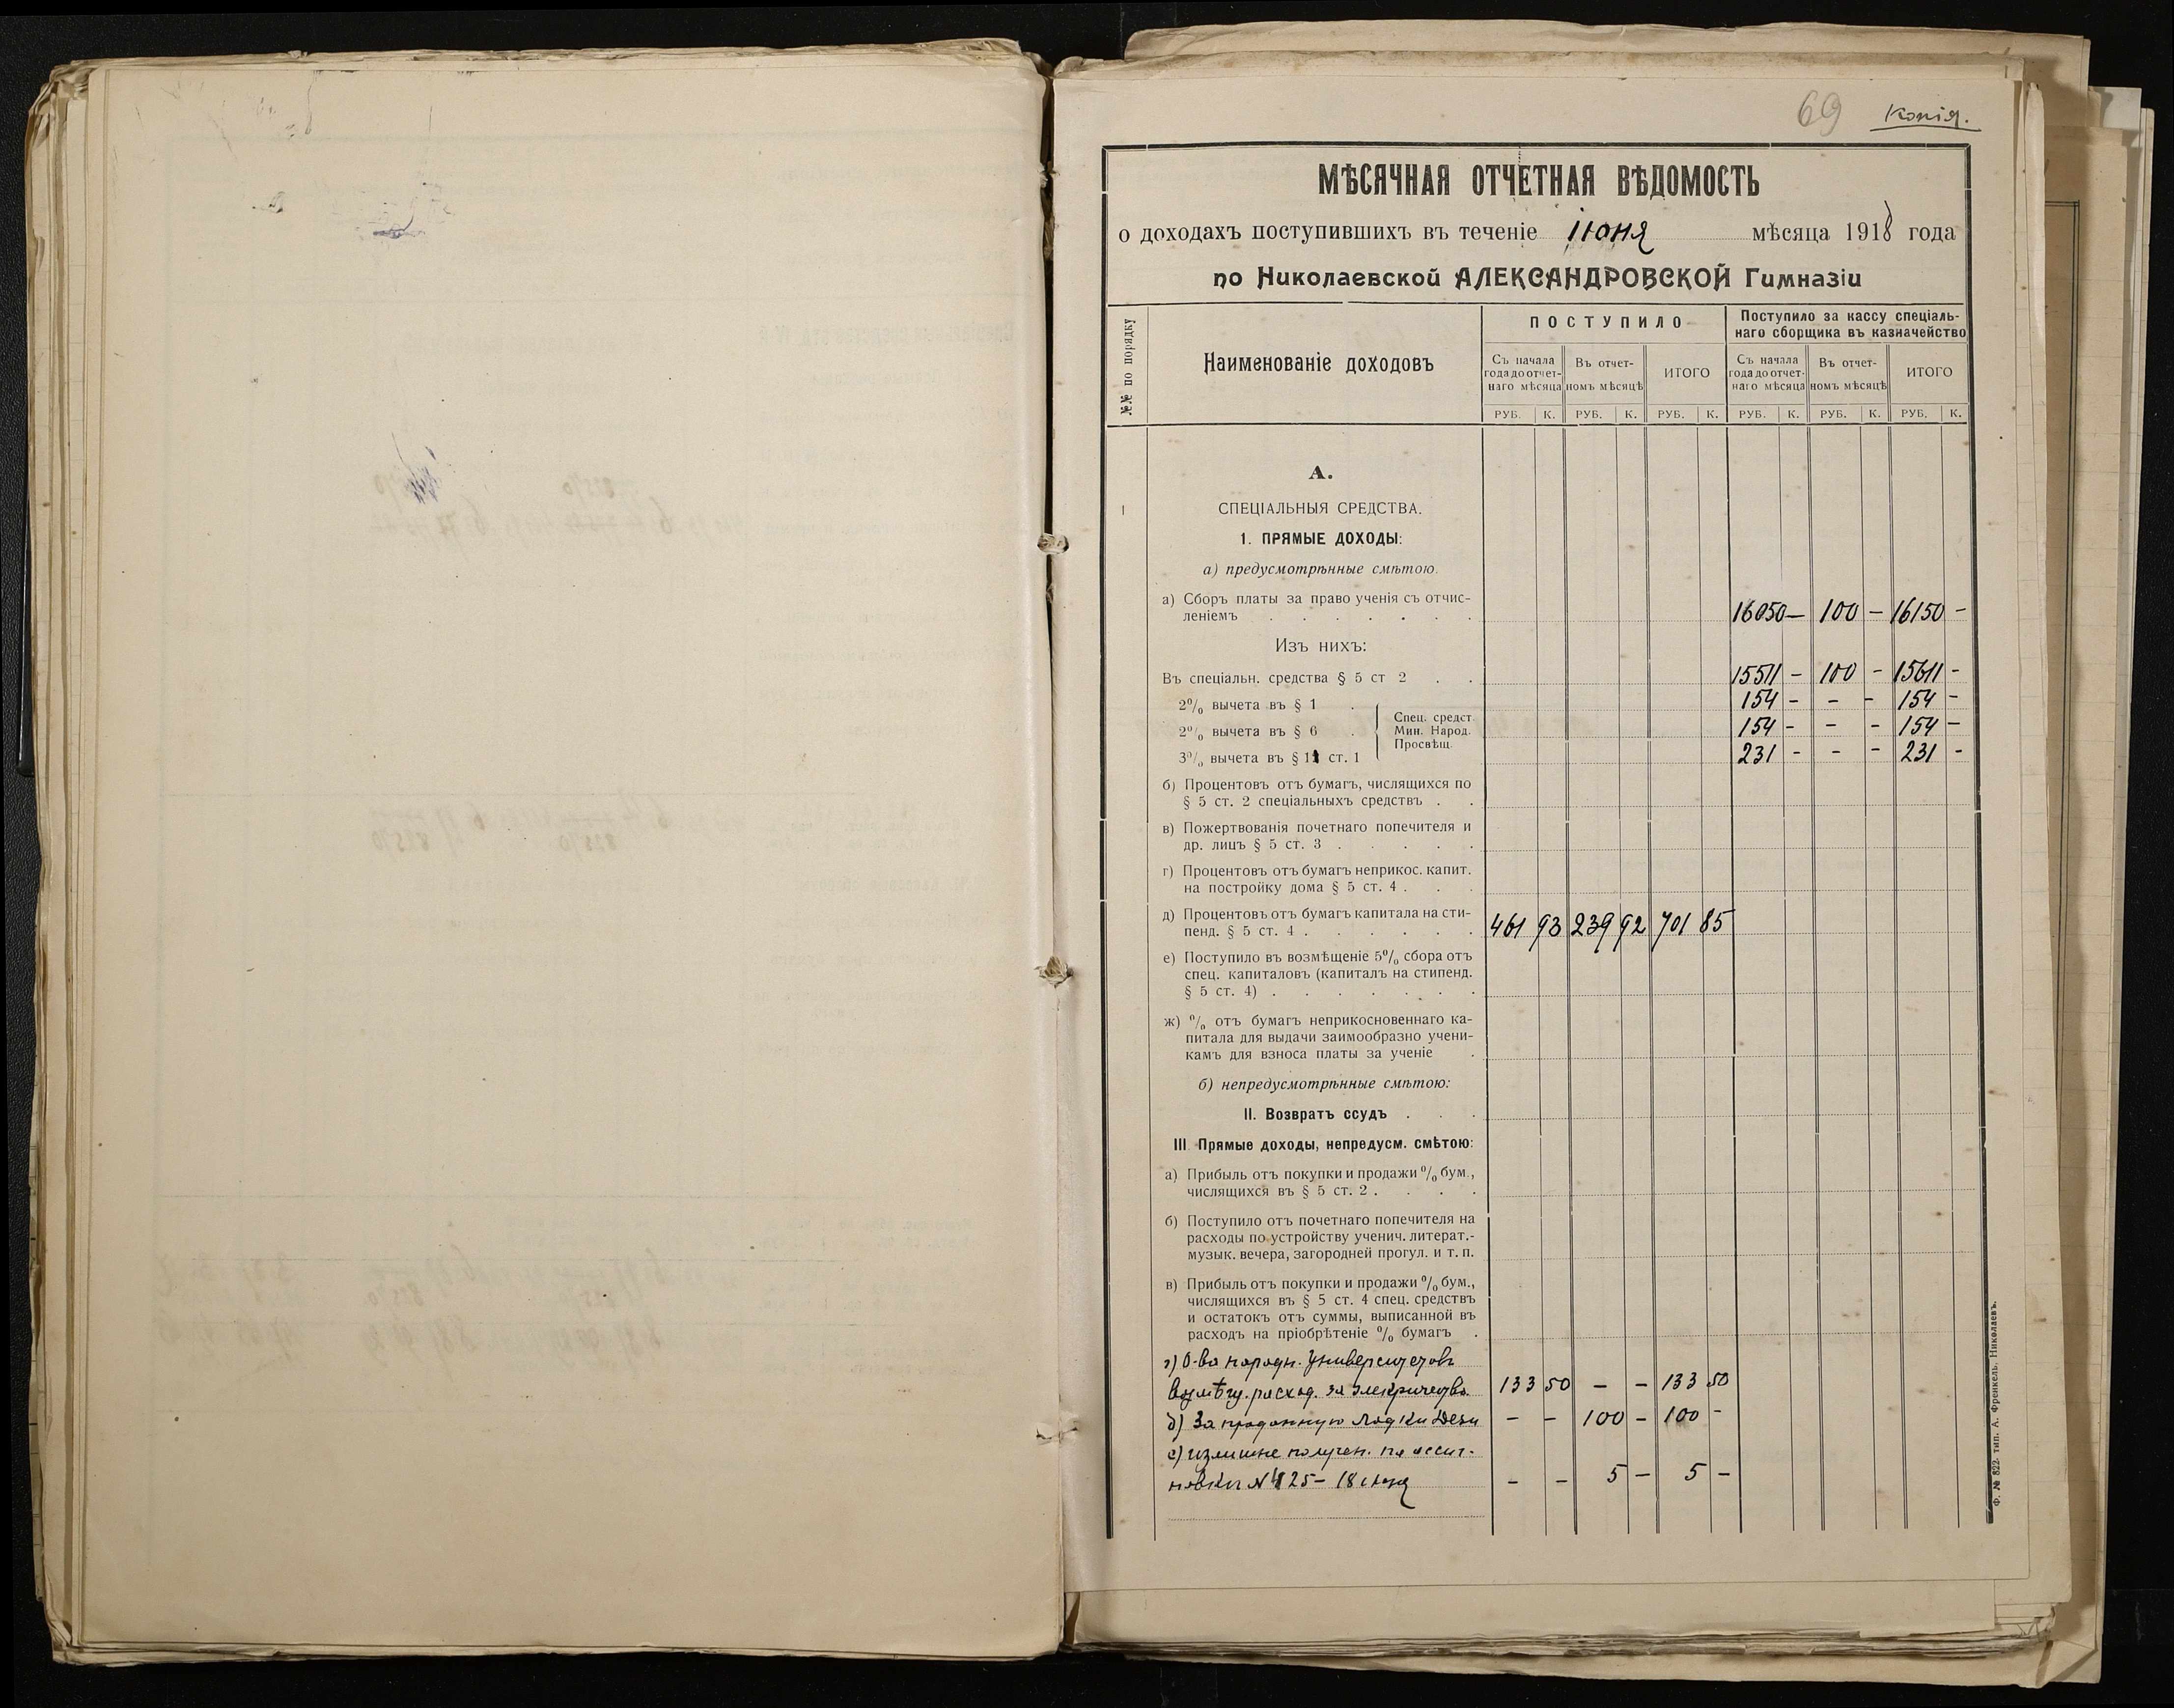 69 Копія.
МѢСЯЧНАЯ ОТЧЕТНАЯ ВѢДОМОСТЬ
о доходахъ поступившихъ въ теченіе іюня мѣсяца 1918 года
по Николаевской АЛЕКСАНДРОВСКОЙ Гимназіи
№№ по порядку
Наименованіе доходовъ
ПОСТУПИЛО
Поступило за кассу спеціаль-
наго сборщика въ казначейство
Съ начала
года до отчет-
наго мѣсяца
Въ отчет-
номъ мѣсяцѣ
ИТОГО
Съ начала
года до отчет-
наго мѣсяца
Въ отчет-
номъ мѣсяцѣ
ИТОГО
РУБ. К. РУБ. К. РУБ. К. РУБ. К. РУБ. К. РУБ. К.
А.
СПЕЦІАЛЬНЫЯ СРЕДСТВА.
1. ПРЯМЫЕ ДОХОДЫ:
а) предусмотрѣнные смѣтою.
а) Сборъ платы за право ученія съ отчис-
леніемъ . . . . . . . 16050 — 100 — 16150 —
Изъ нихъ:
Въ спеціальн. средства § 5 ст 2 . . 15511 — 100 — 15611 —
2% вычета въ § 1 . 154 — — — 154 —
2% вычета въ § 6 . 154 — — — 154 —
3% вычета въ § 11 ст. 1 231 — — — 231 —
Спец. средст
Мин. Народ.
Просвѣщ.
б) Процентовъ отъ бумаг, числящихся по
§ 5 ст. 2 спеціальныхъ средствъ . .
в) Пожертвованія почетнаго попечителя и
др. лицъ § 5 ст. 3 . . . . .
г) Процентовъ отъ бумагъ неприкос. капит.
на постройку дома § 5 ст. 4 . . .
д) Процентовъ отъ бумагъ капитала на сти-
пенд. § 5 ст. 4 . . . . . . 461 93 239 92 701 85
е) Поступило въ возмѣщеніе 5% сбора отъ
спец. капиталовъ (капиталъ на стипенд.
§ 5 ст. 4) . . . . . . .
ж) % отъ бумагъ неприкосновеннаго ка-
питала для выдачи заимообразно учени-
камъ для взноса платы за ученіе .
б) непредусмотрѣнные смѣтою:
II. Возвратъ ссудъ . . .
III Прямые доходы, непредусм. смѣтою:
а) Прибыль отъ покупки и продажи % бум.,
числящихся въ § 5 ст. 2 . . . .
б) Поступило отъ почетнаго попечителя на
расходы по устройству ученич. литерат.-
музык. вечера, загородней прогул. и т. п.
в) Прибыль отъ покупки и продажи % бум.,
числящихся въ § 5 ст. 4 спец. средствъ
и остатокъ отъ суммы, выписанной въ
расходъ на пріобрѣтеніе % бумагъ .
г) О-ва народн. Университетовъ
возмѣщ. расход. за электричество 133 50 — — 133 50
д) За проданную лодки — — 100 — 100 —
е) излишне получен. по ассиг-
новки № 425 — 18 іюня — — 5 — 5 —
Ф. № 822. тип. А. Френкель, Николаевъ.